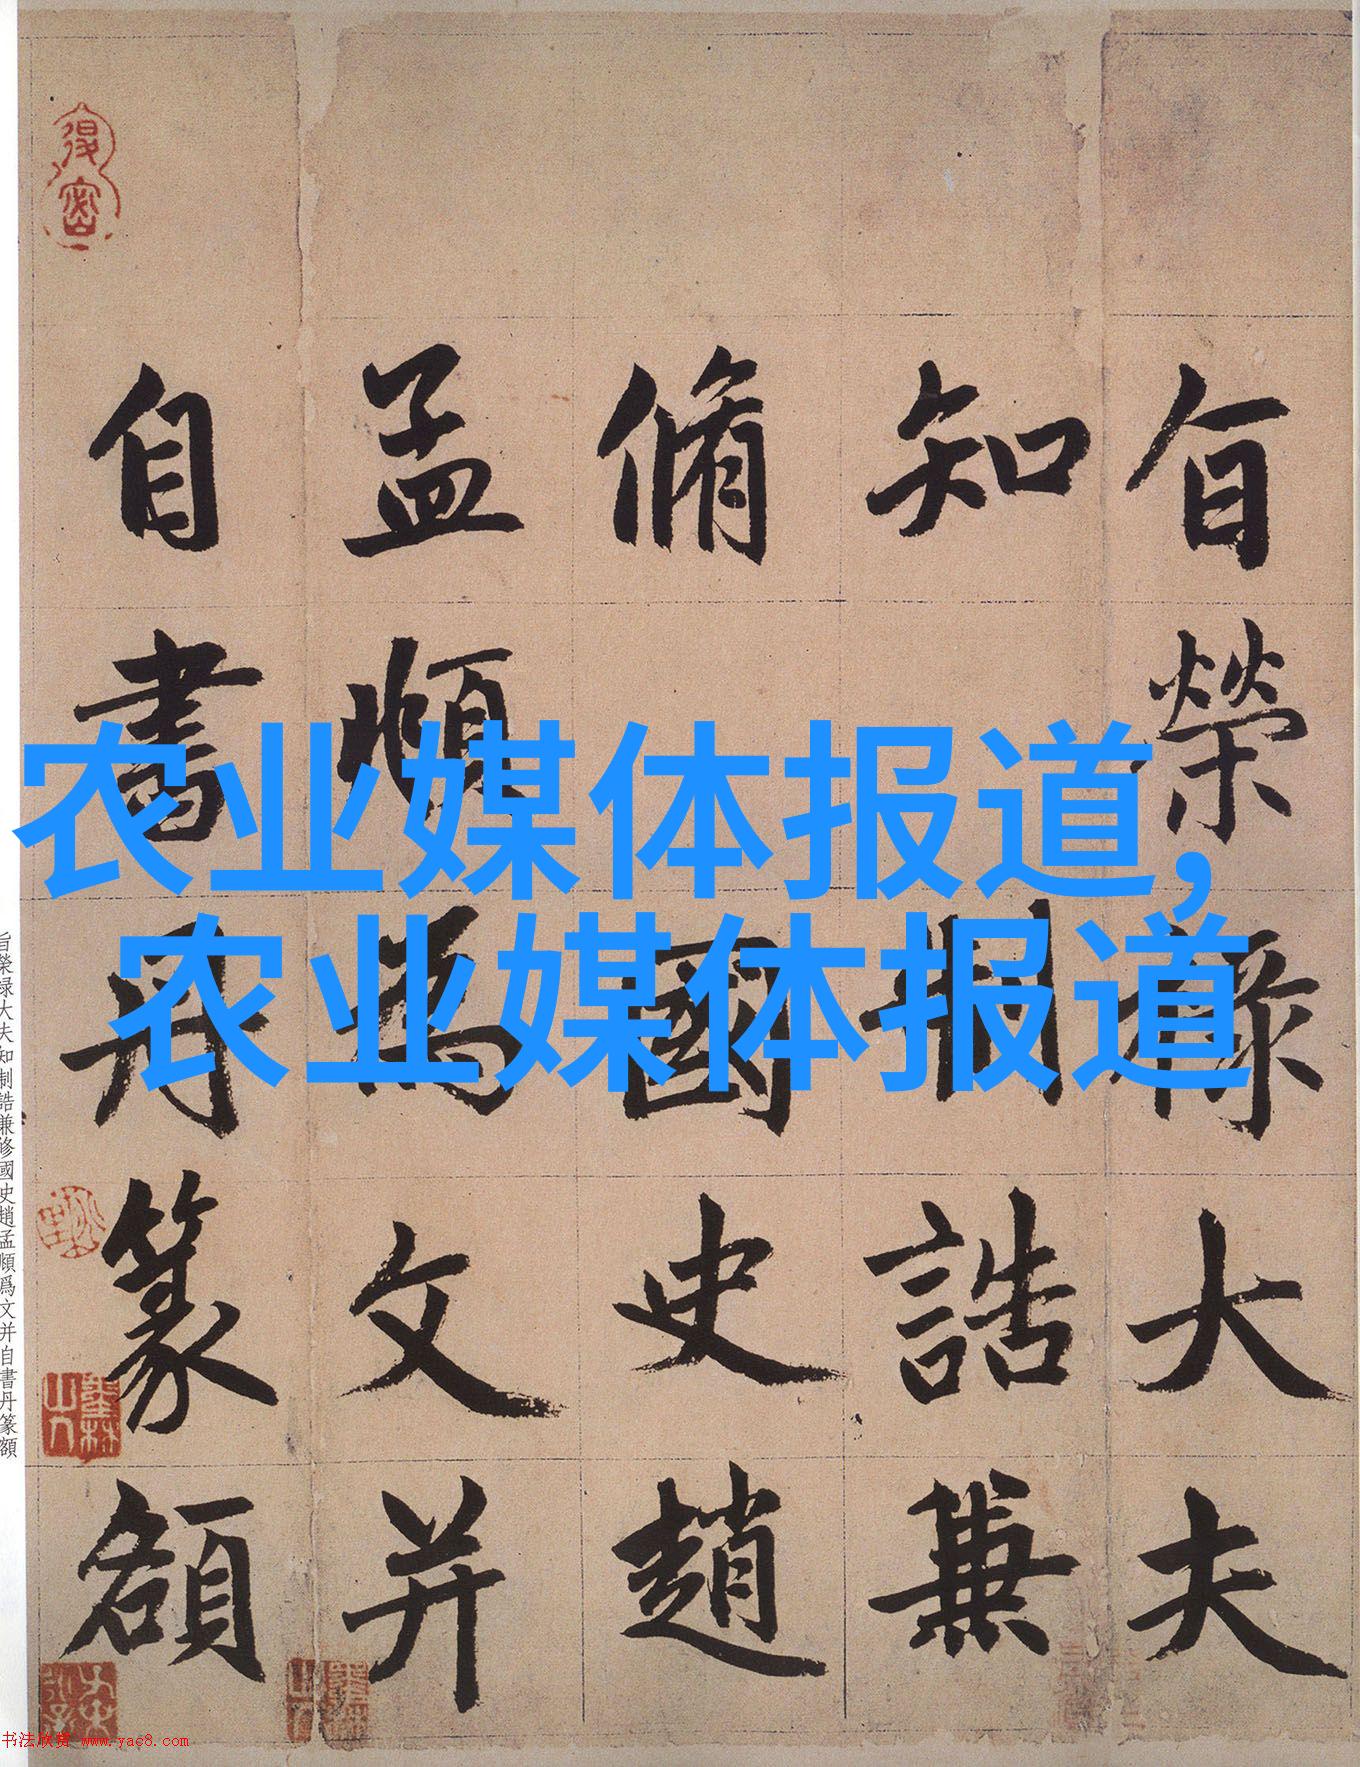 旨榮祿大夫
知制誥兼
脩國史趙
孟頫為文并
自書丹篆額
农业媒体报道,
农业媒体报道
旨榮禄大夫知制誥兼修國史趙孟頫爲文并自書丹篆額
书法欣赏 www.yac8.com